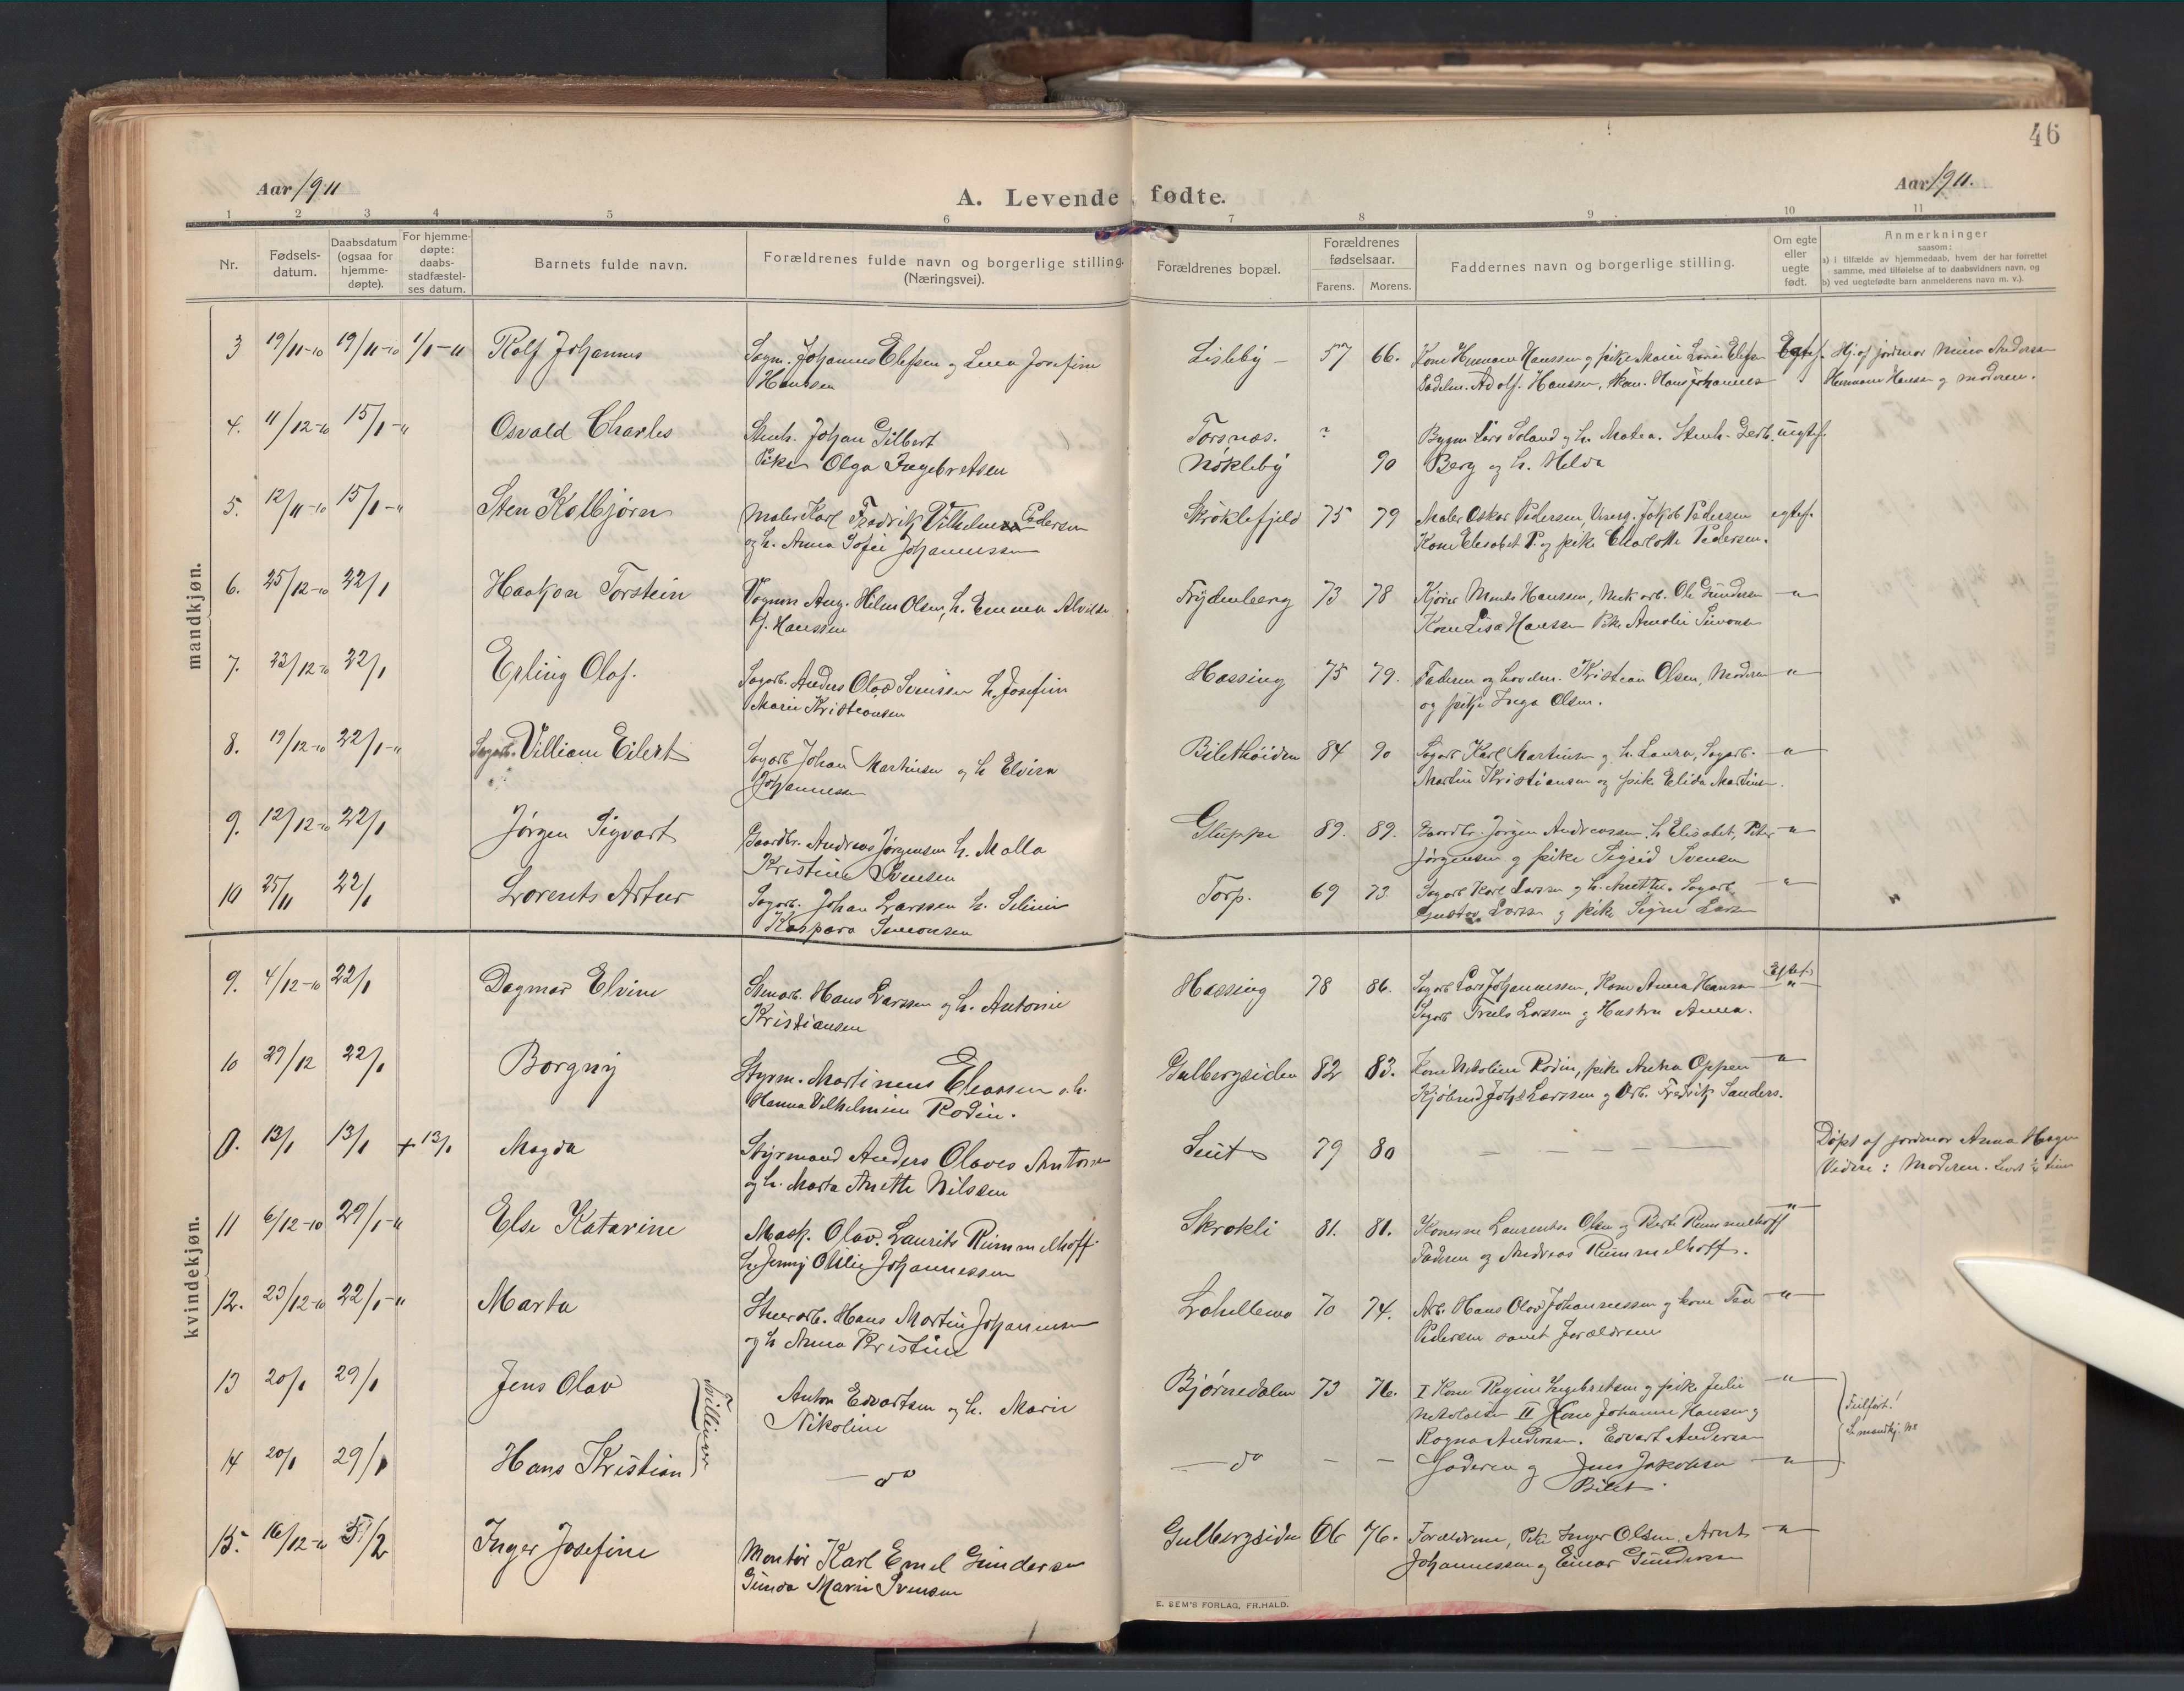 46
Aar 1911
A. Levende fødte.
Aar 1911.
1 2 3 4 5 6 7 8 9 10 11
Nr.
Fødsels-
datum.
Daabsdatum
(ogsaa for
hjemme-
døpte).
For hjemme-
døpte:
daabs-
stadfæstel-
ses datum.
Barnets fulde navn.
Forældrenes fulde navn og borgerlige stilling.
(Næringsvei).
Forældrenes bopæl.
Forældrenes
fødselsaar.
Farens. Morens.
Faddernes navn og borgerlige stilling.
Om egte
eller
uegte
født.
Anmerkninger
saasom:
a) i tilfælde av hjemmedaab, hvem der har forrettet
samme, med tilføielse af to daabsvidners navn, og
b) ved uegtefødte barn anmelderens navn m. v.).
mandkjøn.
3 19/11-10 19/11-10 1/1-11 Rolf Johannes Sagm. Johannes Elefsen og Lena Josefine Lisleby 57 66. Kone Hermane Hanssen og pike Marie Lovise Elefsen Egtef. Hj. af jordmor Mina Andersen
Hanssen Sadelm. Adolf Hanssen, Hans Johannes Hermane Hansen og moderen.
4. 11/12-10 15/1-11 Osvald Charles Stenh. Johan Gilbert Torsnæs. ? Bygm Lars Soland og h. Matea. Stenh. Gerh. uegtef.
Pike Olga Ingebretsen Nøkleby 90 Berg og h. Helda
5. 12/11-10 15/1-11 Sten Kolbjørn Maler Karl Fredrik Vilhelm Pedersen Skröklefjeld 75 79 Maler Oskar Pedersen, Jakob Pedersen egtef.
og h. Anna Sofie Johannessen Kone Elisabet P. og pike Charlotte Pedersen.
6. 25/12-10 22/1 Haakon Torstein Vognm Aug. Hilm Olsen, h. Emma Alvilde Frydenberg 73 78 Kjører Hanssen, Mek arb. Ole Gundersen "
J. Hanssen Kone Lisa Hanssen Pike Amalie Simonsen
7. 23/12-10 22/1 Erling Olaf. Sagarb. Anders Olas Svenssen h. Josefine Hassing 75 79. Faderen og Kristian Olsen, Moderen "
Marie Kristiansen og pike Inga Olsen.
8. 19/12-10 22/1-11 Villiam Eilert Sagarb Johan Martinsen og h Elvira Bilethöiden 84 90 Sagarb Karl Martinsen og h. Laura, Sagarb. "
Johannessen Martin Kristiansen og pike Elida Martinsen.
9. 12/12-10 22/1 Jørgen Sigvart Gaardbr. Andreas Jørgensen h. Malla Gluppe 89. 89. Gaardbr. Jörgen Andreassen, h Elisabet, Peter "
Kristine Svensen Jørgensen og pike Sigrid Svensen
10 25/11 22/1 Lorents Artur Sagarb. Johan Larssen h. Selinie Torp. 69 73 Sagarb Karl Larssen og h. Anette. Sagarb. "
Kaspara Simonsen Gustav Larssen og pike Signe Larsen
kvindekjøn.
9. 4/12-10 22/1 Dagmar Elvine Stenarb. Hans Larssen og h. Antonie Hassing 78 86. Sagarb Lars Johannessen, Kone Anna Hansen Egtef. "
Kristiansen Sagarb Truls Larssen og Hustru Anna.
10 29/12 22/1 Borgny Styrm. Martinius Eleassen o. h. Gulbergsiden 82 83. Kone Nikoline Rodin, pike Anna Oppen "
Hanna Vilhelmine Rodin. Kjøbmd Johs Larssen og Arb. Fredrik Sanders.
0. 13/1 13/1 + 13/1 Magda Styrmand Anders Olaves Antons Leut 79 80 — — — — Döpt af jordmor Anna Hagen
og h. Marta Anette Nilssen Vidne: Moderen. Levet 1/4 time
11 6/12-10 29/1-11 Else Katarine Mask. Olav Laurits Rummelhoff Skrokli 81. 81. Konerne Laurentse Olsen og Berte Rummelhoff "
h. Jenny Otilie Johannessen Faderen og Andreas Rummelhoff.
12. 23/12-10 22/1-11 Marta Stenarb. Hans Martin Johannessen 70 74. Arb. Hans Olav Johannessen og kone Tea "
og h Anna Kristine Pedersen samt forældrene
13 20/1 29/1 Jens Olav Tvillinger Anton Edvartsen og h. Marie Bjørnedalen 73 76. I Kone Regine Ingebretsen og pike Julie " Feilført!
Nikoline Nikolaisen II Kone Johanne Hansen og Se mandkj. No
Ragna Andersen. Edvart Andersen
14 20/1 29/1 Hans Kristian — do — do — — Faderen og Jens Jakobsen "
Bilet.
15. 16/12-10 5/2 Inger Josefine Montør Karl Emil Gundersen Gulbergsiden 66 76. Forældrene, Pike Inger Olsen, Arnt "
Gunda Marie Svensen Johannessen og Einar Gundersen
E. SEM'S FORLAG, FR.HALD.